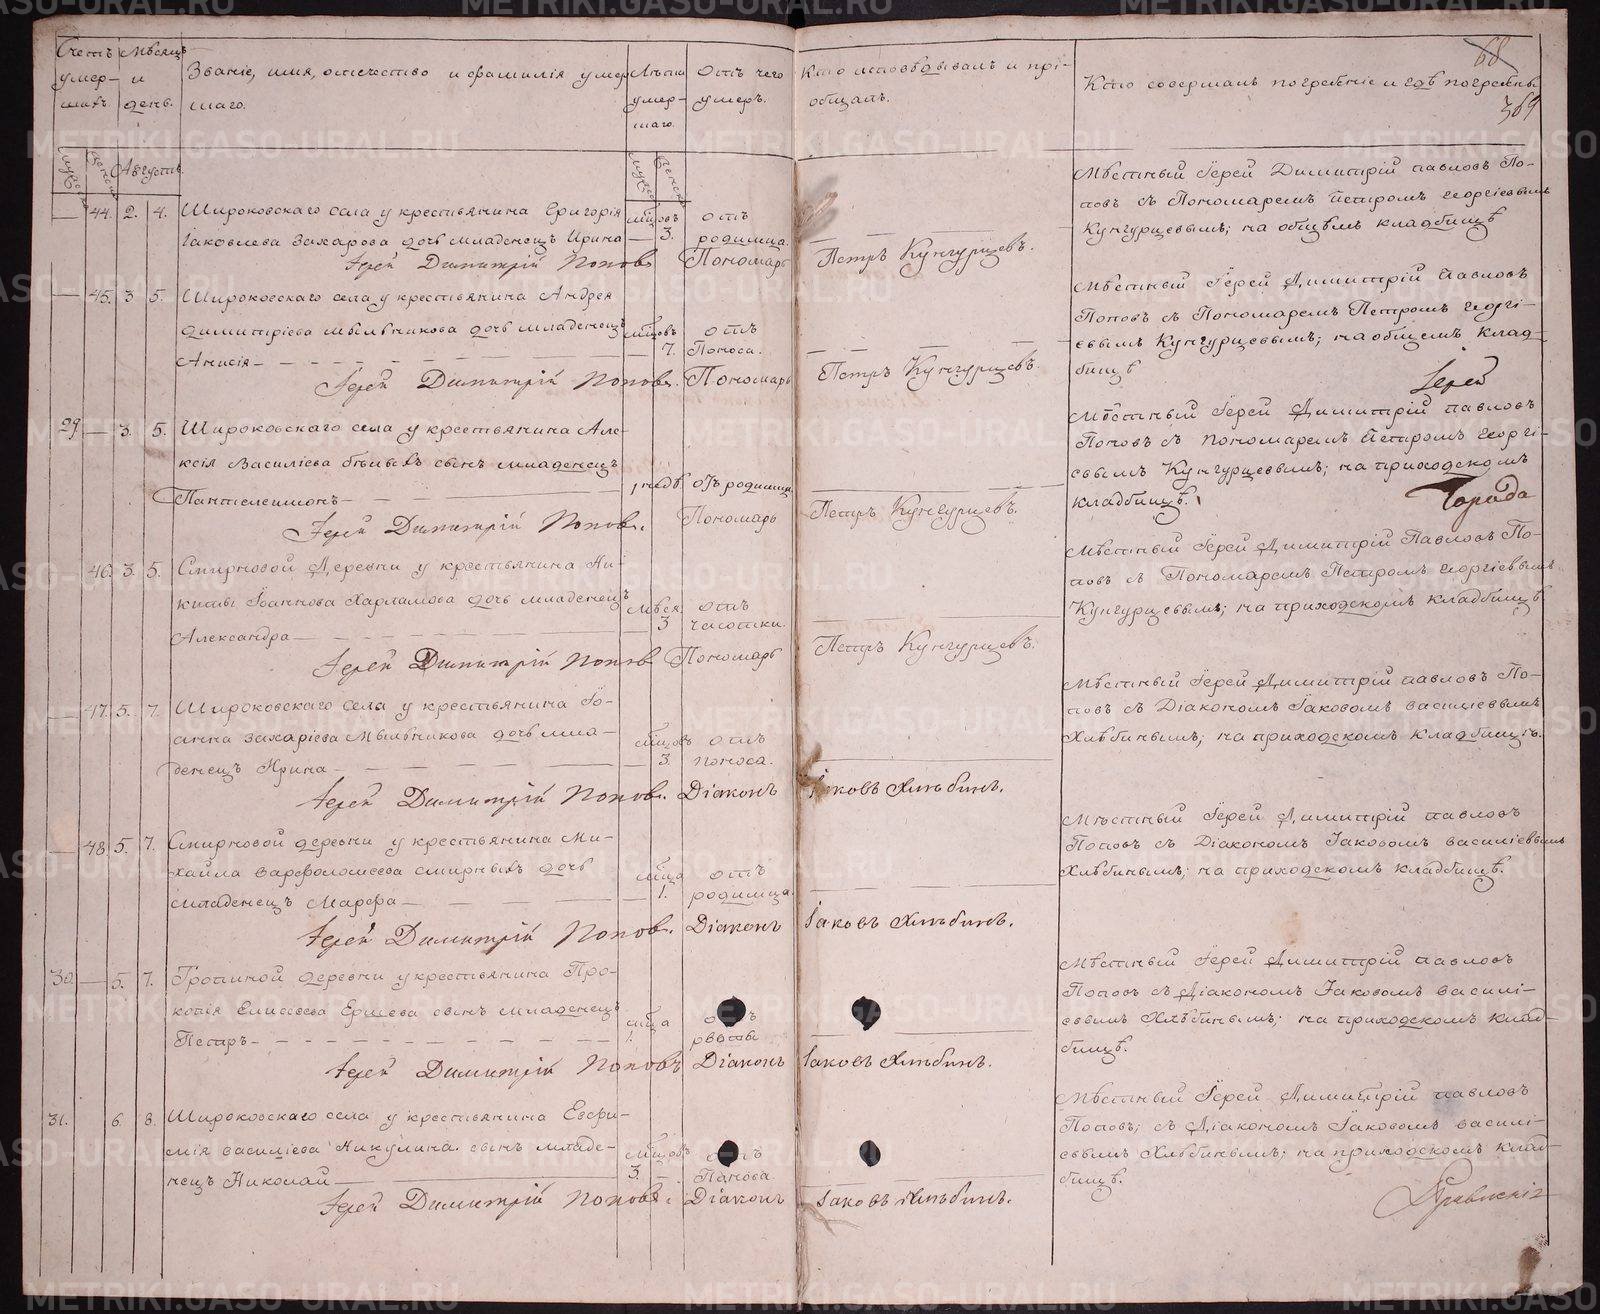 Счетъ умер-
шихъ.
Мѣсяцъ
и
день.
Званіе, имя, отечество и фамилія умер-
шаго.
Лѣта
умер-
шаго.
Отъ чего
умеръ.
Кто исповѣдывалъ и прі-
общалъ.
Кто совершалъ погребеніе и гдѣ погребены.
68
369
Августъ.
44. 2. 4. Широковскаго села у крестьянина Григорія
Іаковлева Захарова дочь младенецъ Ирина
мцовъ
3.
отъ
родимца.
Іерей Димитрій Поповъ
Пономарь Петръ Кунгурцевъ.
Мѣстный Іерей Димитрій Павловъ По-
повъ съ Пономаремъ Петромъ Георгіевымъ
Кунгурцевымъ; на общемъ кладбищѣ
45. 3 5. Широковскаго села у крестьянина Андрея
Димитріева Мыльникова дочь младенецъ
Анисія
мцовъ
7.
отъ
Поноса.
Іерей Димитрій Поповъ.
Пономарь Петръ Кунгурцевъ.
Мѣстный Іерей Димитрій Павловъ
Поповъ съ Пономаремъ Петромъ Георгі-
евымъ Кунгурцевымъ; на общемъ клад-
бищѣ
Іерей
29 3. 5. Широковскаго села у крестьянина Але-
ксія Василіева сынъ младенецъ
Пантелеимонъ
1 недѣ. отъ родимца
Іерей Димитрій Поповъ.
Пономарь Петръ Кунгурцевъ.
Мѣстный Іерей Димитрій Павловъ
Поповъ съ Пономаремъ Петромъ Георгі-
евымъ Кунгурцевымъ; на приходскомъ
кладбищѣ.
46. 3. 5. Смирновой Деревни у крестьянина Ни-
киты Іоаннова Харламова дочь младенецъ
Александра
мѣся.
3
отъ
чесотки.
Іерей Димитрій Поповъ
Пономарь Петръ Кунгурцевъ.
Мѣстный Іерей Димитрій Павловъ По-
повъ съ Пономаремъ Петромъ Георгіевымъ
Кунгурцевымъ; на приходскомъ кладбищѣ
47. 5. 7. Широковскаго села у крестьянина Іо-
анна Захаріева Мыльникова дочь мла-
денецъ Ирина
мцовъ
3.
отъ
поноса.
Іерей Димитрій Поповъ.
Діаконъ Іаковъ Хлѣбинъ.
Мѣстный Іерей Димитрій Павловъ По-
повъ съ Діакономъ Іаковомъ Василіевымъ
Хлѣбинымъ; на приходскомъ кладбищѣ.
48. 5. 7. Смирновой деревни у крестьянина Ми-
хаила Варфоломеева Смирныхъ дочь
младенецъ Марфа
мца
1.
отъ
родимца.
Іерей Димитрій Поповъ.
Діаконъ Іаковъ Хлѣбинъ.
Мѣстный Іерей Димитрій Павловъ
Поповъ съ Діакономъ Іаковомъ Василіевымъ
Хлѣбинымъ; на приходскомъ кладбищѣ.
30. 5. 7. деревни у крестьянина Про-
копія Елисеева Ершева сынъ младенецъ
Петръ
мца
1.
рвоты
Іерей Димитрій Поповъ
Діаконъ Іаковъ Хлѣбинъ.
Мѣстный Іерей Димитрій Павловъ
Поповъ съ Діакономъ Іаковомъ Василі-
евымъ Хлѣбинымъ; на приходскомъ клад-
бищѣ.
31. 6. 8. Широковскаго села у крестьянина Евфи-
мія Василіева Никулина сынъ младе-
нецъ Николай
мцовъ
3.
отъ
Паноса
Іерей Димитрій Поповъ.
Діаконъ Іаковъ Хлѣбинъ.
Мѣстный Іерей Димитрій Павловъ
Поповъ; съ Діакономъ Іаковомъ Василі-
евымъ Хлѣбинымъ; на приходскомъ клад-
бищѣ.
METRIKI.GASO-URAL.RU